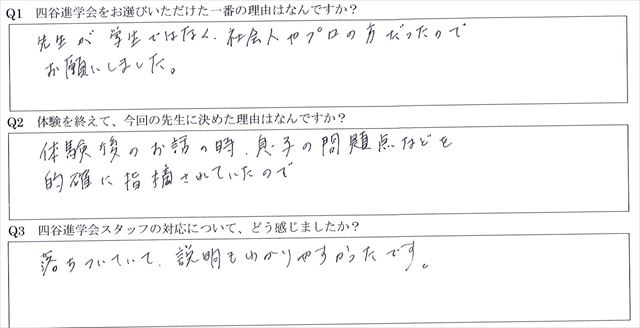 Q1 四谷進学会をお選びいただけた一番の理由はなんですか？
先生が学生ではなく、社会人やプロの方だったので
お願いしました。
Q2 体験を終えて、今回の先生に決めた理由はなんですか？
体験後のお話の時、息子の問題点などを
的確に指摘されていたので
Q3 四谷進学会スタッフの対応について、どう感じましたか？
落ちついていて、説明もわかりやすかったです。